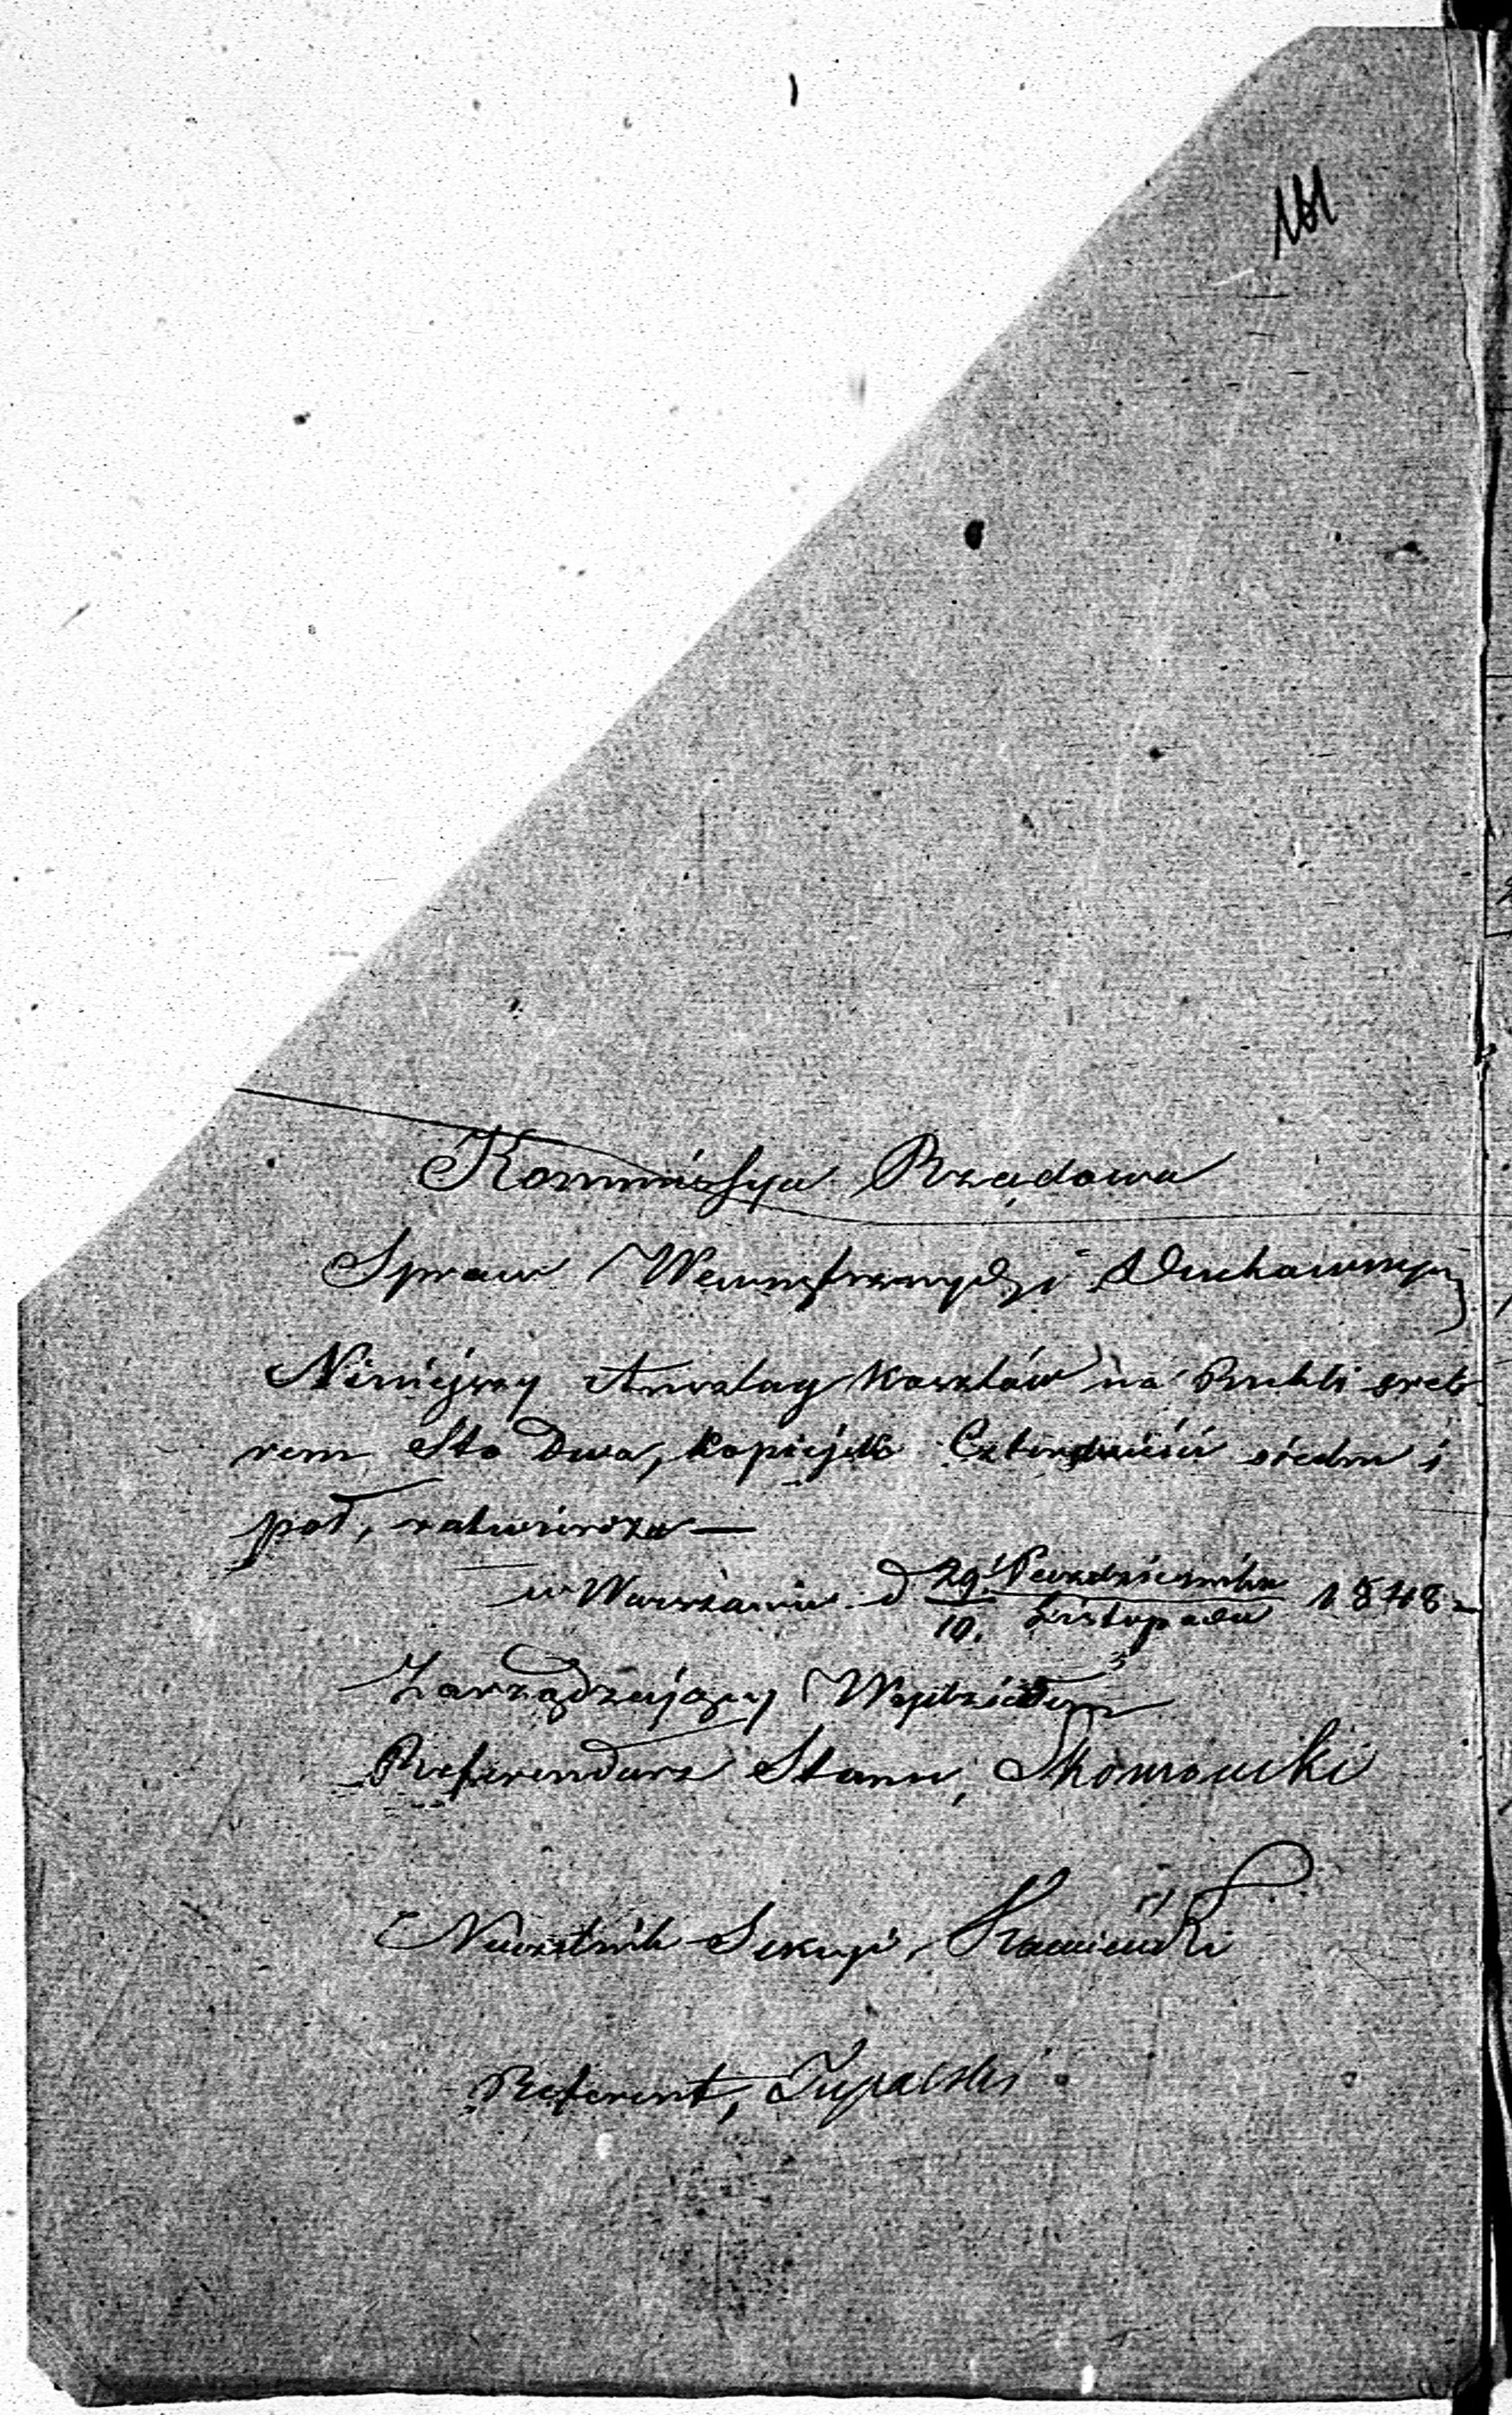 161
Kommissya Rządowa
Spraw Wewnętrznych i Duchownych
Niniejszy Anszlag kosztów na Rubli sreb
rem Sto Dwa, kopiejek Czterdzieści siedm i
pół, zatwierdza —
w Warszawie d 29. Października 1848
10. Listopada
Zarządzający Wydziałem
Referendarz Stanu,
Naczelnik Sekcyi, Kamiński
Referent,